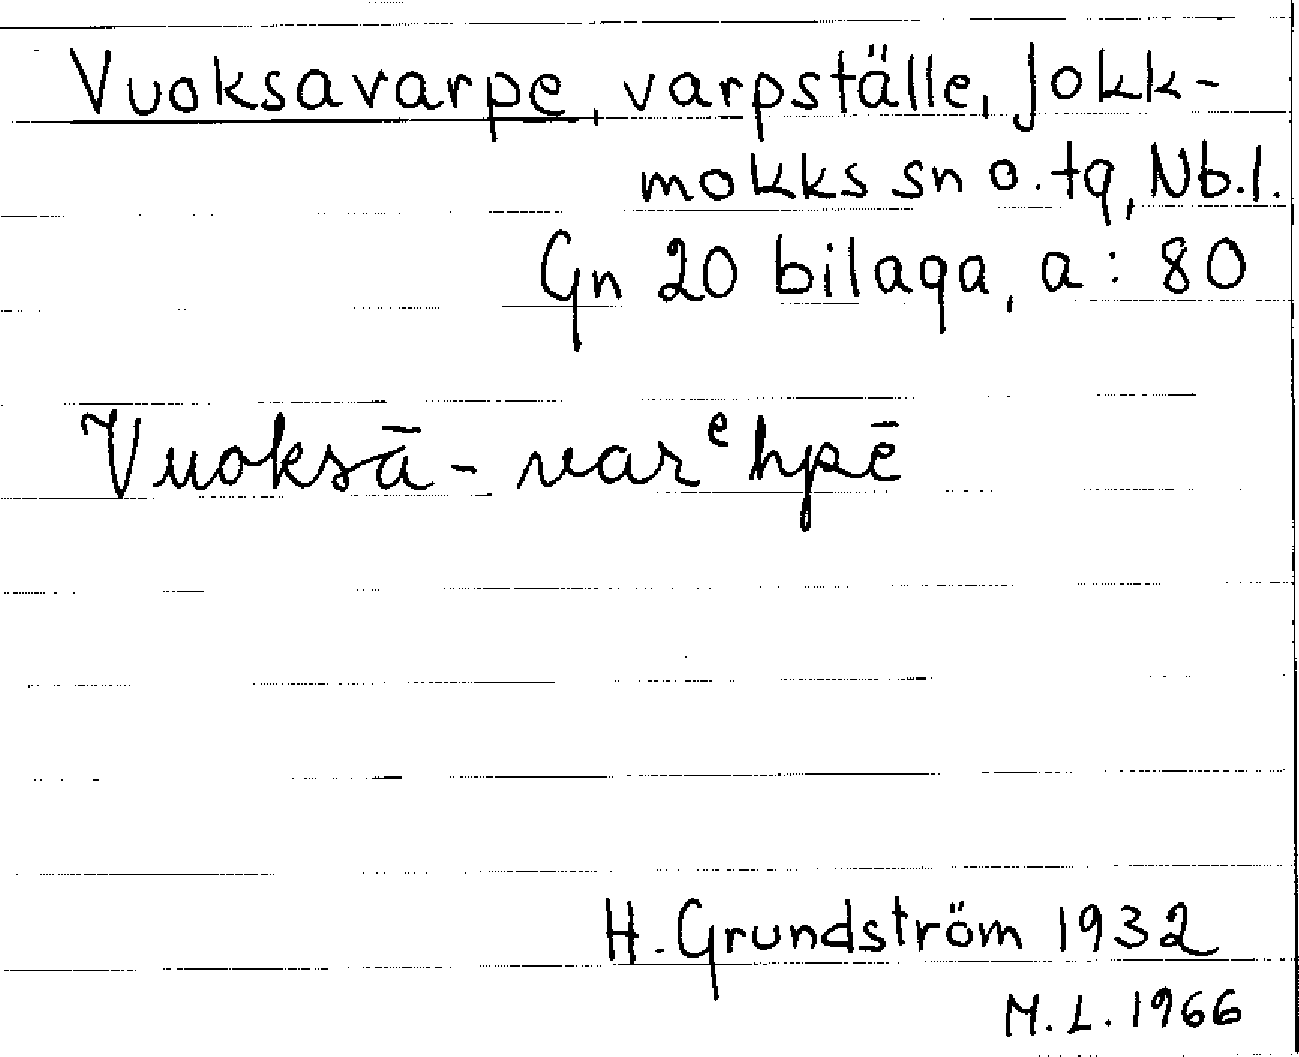 Vuoksavarpe, varpställe, Jokk-
mokks sn o. tg, Nb. l.
Gn 20 bilaga, a: 80
Vuoksā-varᵉhpē
H. Grundström 1932
M. L. 1966